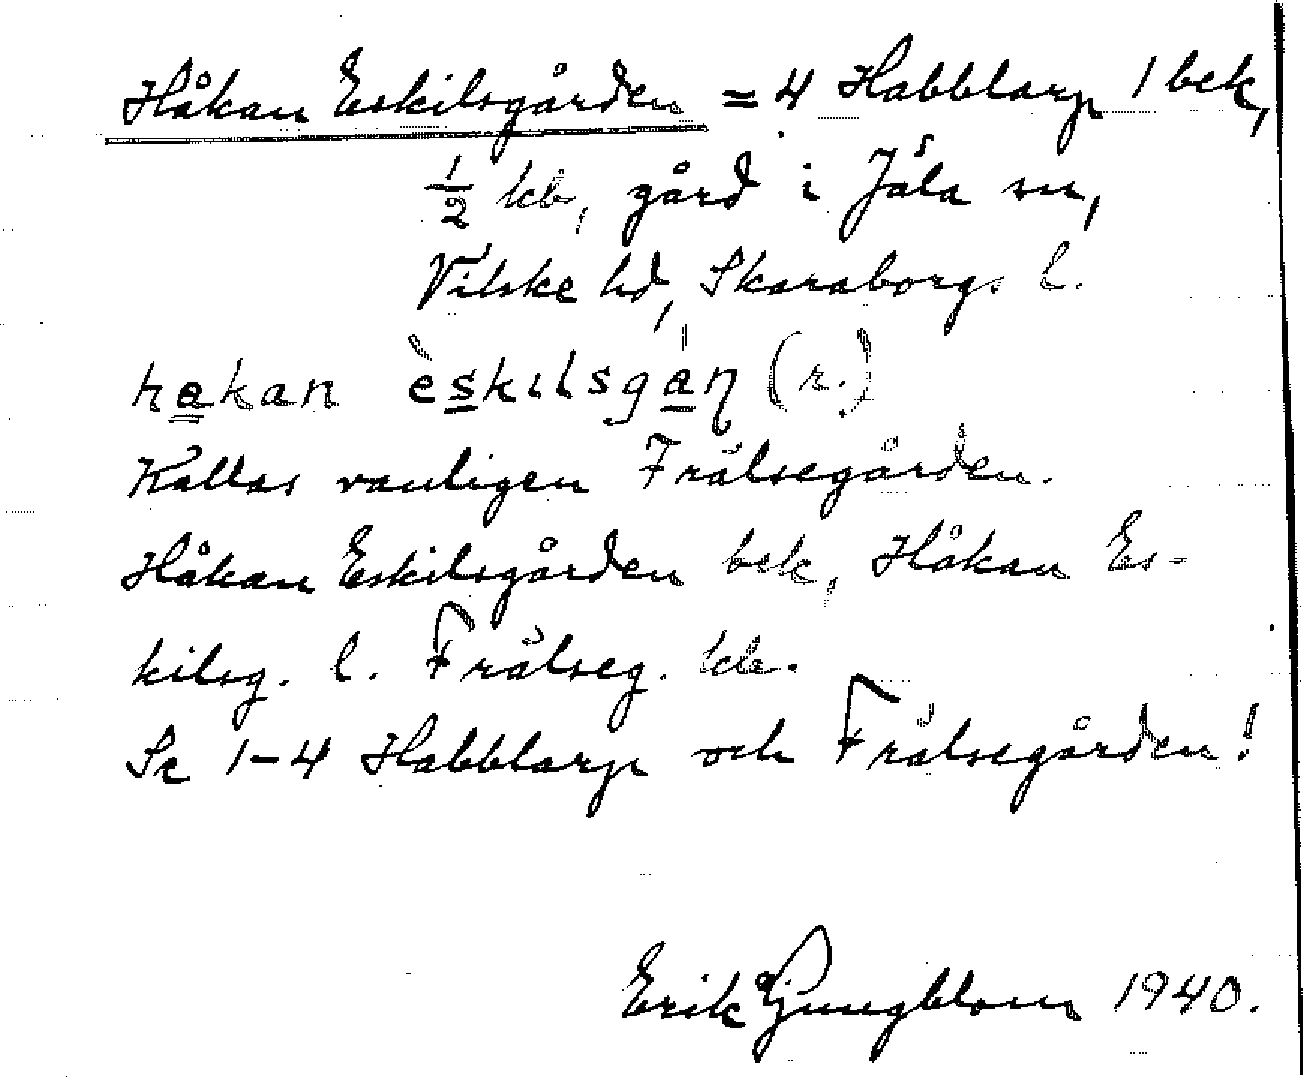 Håkan Eskilsgården = 4 Habblarp 1 bek,
1/2 kb, gård i Jäla sn,
Vilske hd, Skaraborgs l.
hakan èskilsgáɳ (r.)
Kallas vanligen Frälsegården.
Håkan Eskilsgården bek, Håkan Es-
kilsg. l. Frälseg. kb.
Se 1-4 Habblarp och Frälsegården!
Erik Ljungblom 1940.